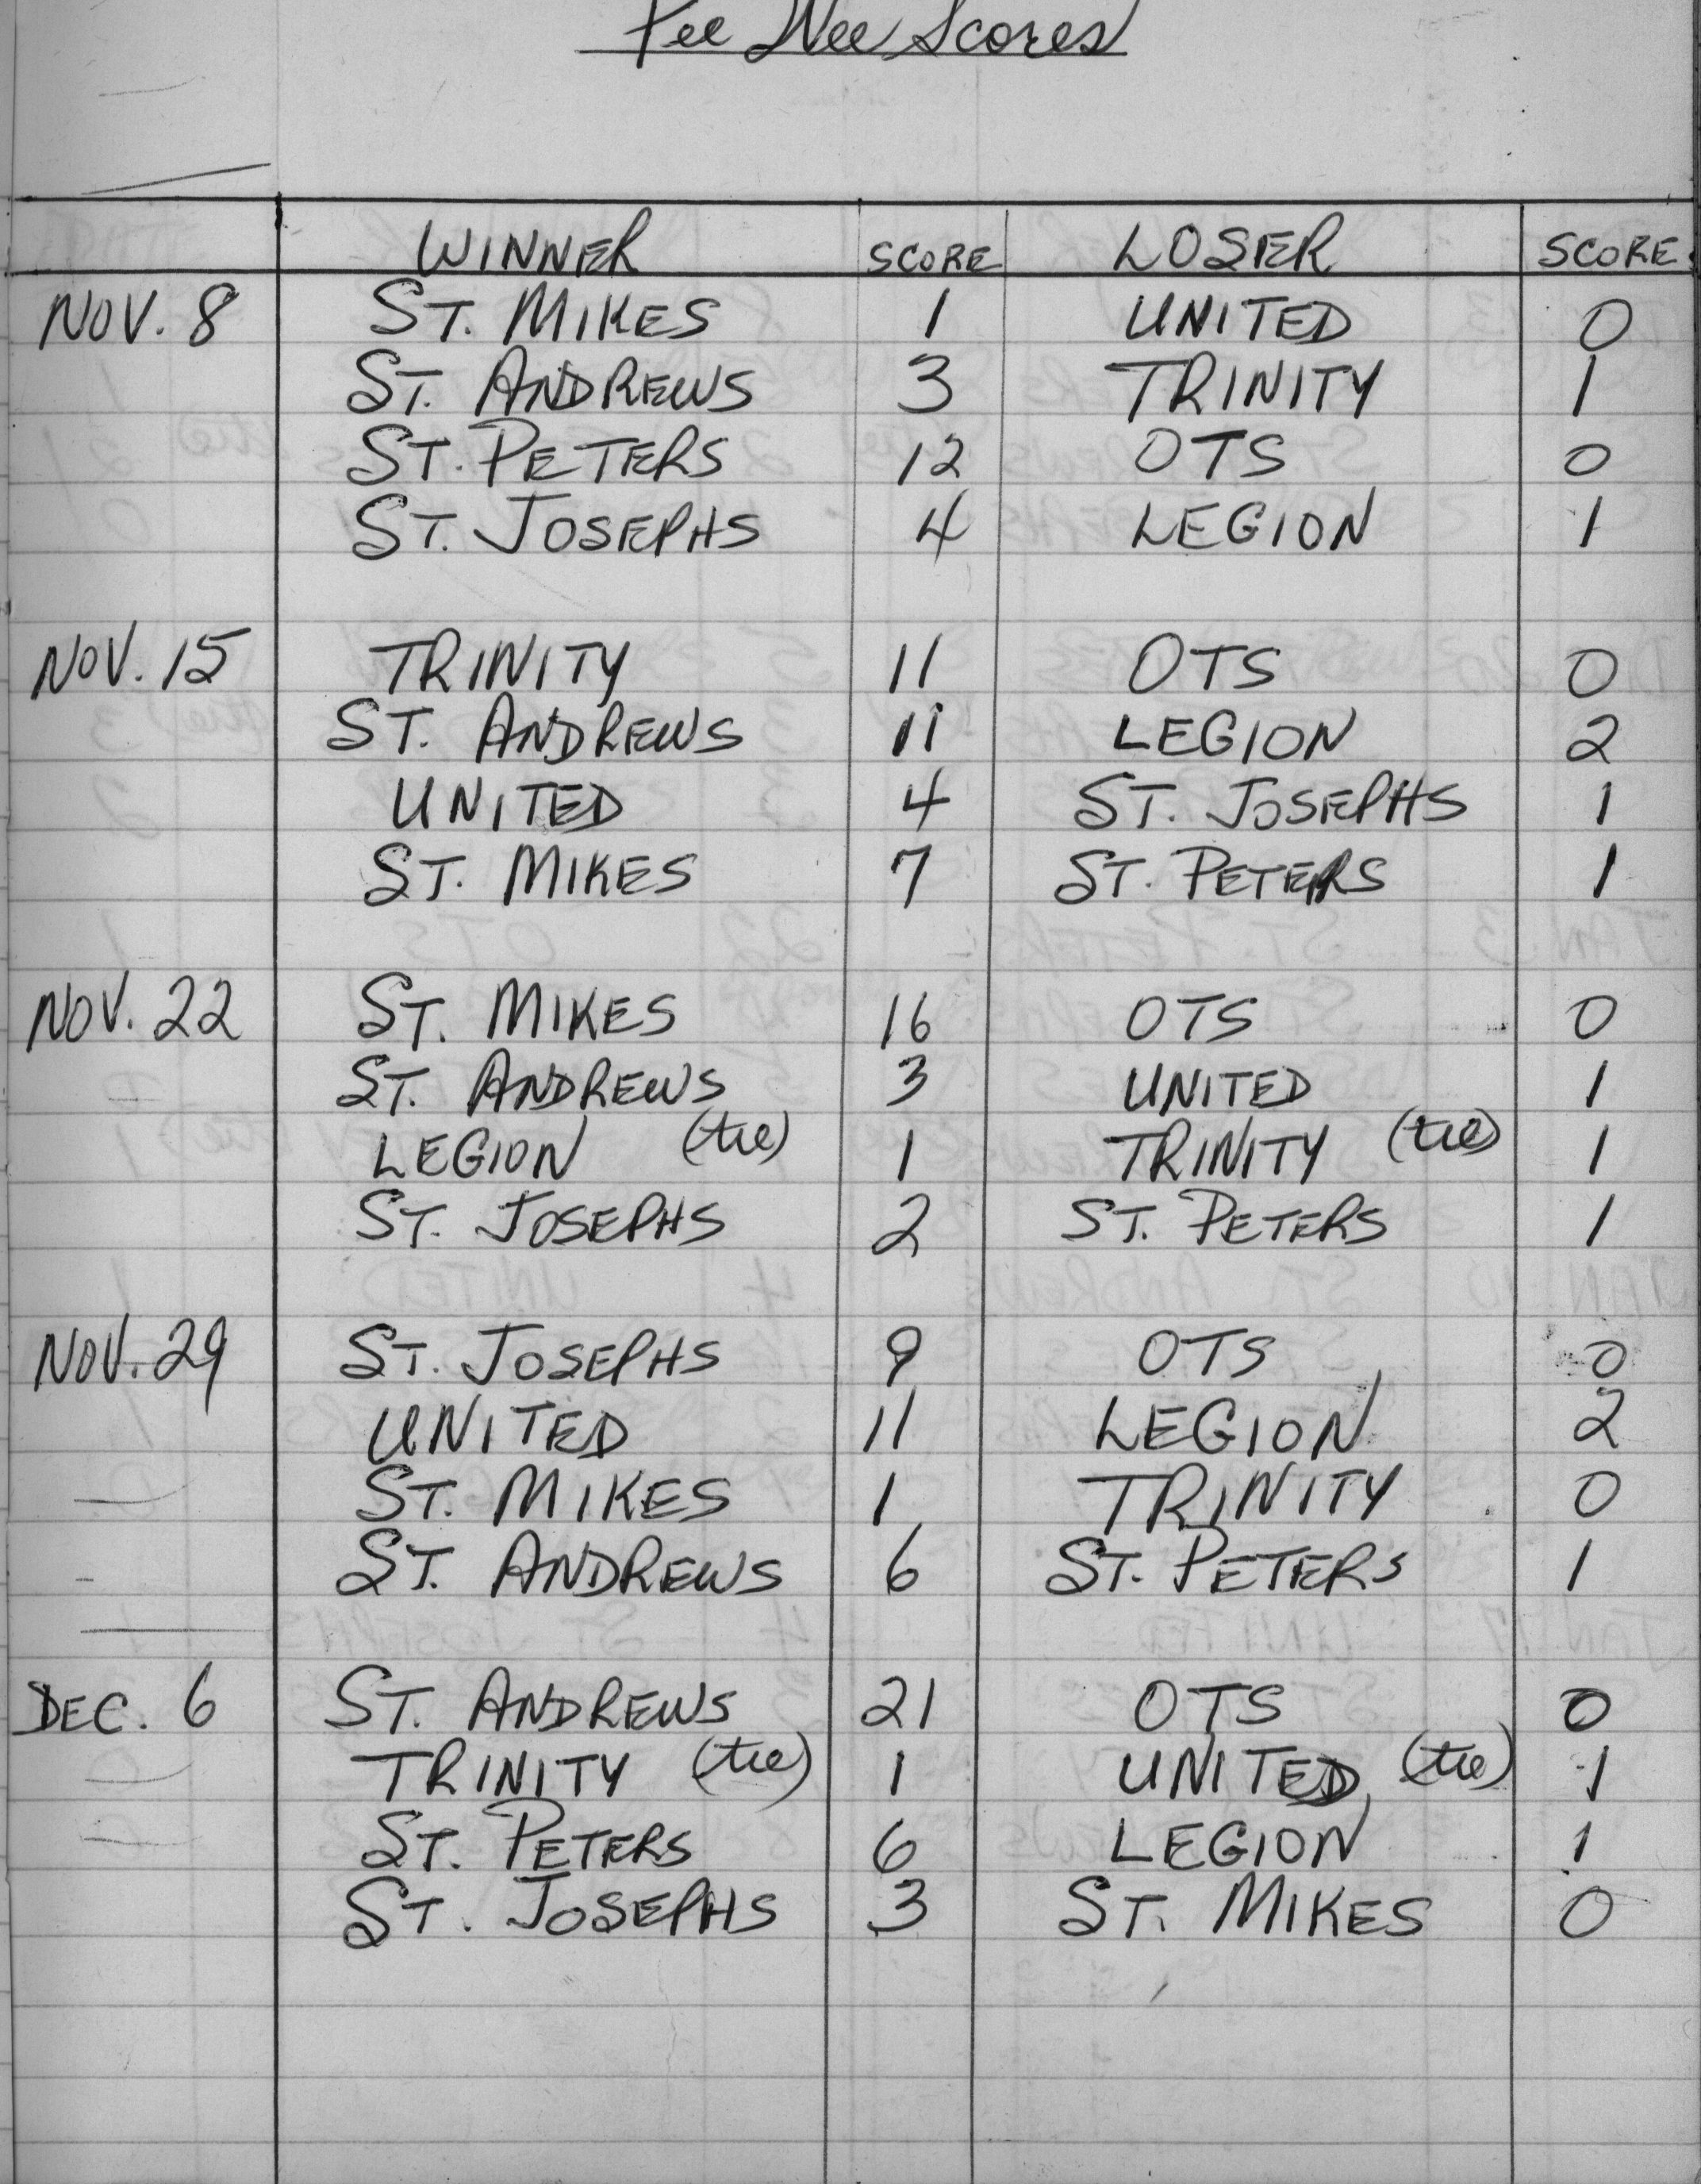 Pee Wee Scores
WINNER SCORE LOSER SCORE
NOV. 8 ST. MIKES 1 UNITED 0
ST. ANDREWS 3 TRINITY 1
ST. PETERS 12 OTS 0
ST. JOSEPHS 4 LEGION 1
NOV. 15 TRINITY 11 OTS 0
ST. ANDREWS 11 LEGION 2
UNITED 4 ST. JOSEPHS 1
ST. MIKES 7 ST. PETERS 1
NOV. 22 ST. MIKES 16 OTS 0
ST. ANDREWS 3 UNITED 1
LEGION (tie) 1 TRINITY (tie) 1
ST. JOSEPHS 2 ST. PETERS 1
NOV. 29 ST. JOSEPHS 9 OTS 0
UNITED 11 LEGION 2
ST. MIKES 1 TRINITY 0
ST. ANDREWS 6 ST. PETERS 1
DEC. 6 ST. ANDREWS 21 OTS 0
TRINITY (tie) 1 UNITED (tie) 1
ST. PETERS 6 LEGION 1
ST. JOSEPHS 3 ST. MIKES 0